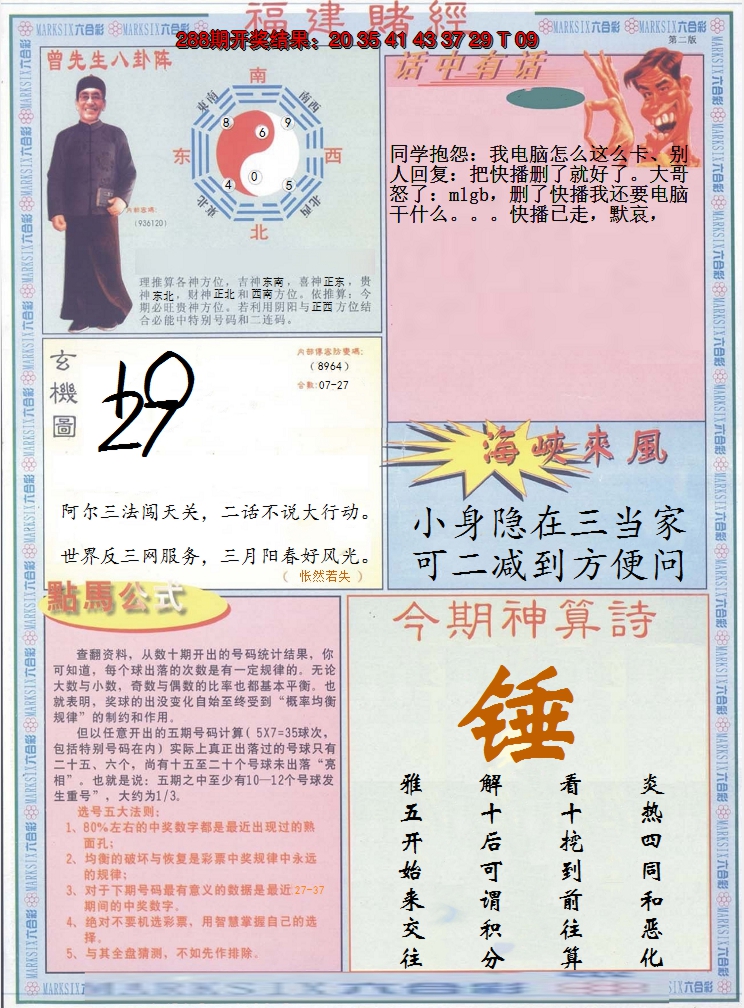 福建賭經
288期开奖结果：20 35 41 43 37 29 T 09
第二版
MARKSIX六合彩
曾先生八卦阵
南
东南
西南
8
9
6
东
西
0
4
5
东北
西北
北
内部密碼:
（936120）
理推算各神方位，吉神东南，喜神正东，贵
神东北，财神正北和西南方位。依推算：今
期必旺贵神方位。若利用阴阳与正西方位结
合必能中特别号码和二连码。
话中有话
同学抱怨：我电脑怎么这么卡、别
人回复：把快播删了就好了。大哥
怒了：mlgb，删了快播我还要电脑
干什么。。。快播已走，默哀，
玄機圖
内部傳密防密碼:
（8964）
合數:07-27
阿尔三法闯天关，二话不说大行动。
世界反三网服务，三月阳春好风光。
（ 怅然若失 ）
海峽來風
小身隐在三当家
可二减到方便问
點馬公式
查翻资料，从数十期开出的号码统计结果，你
可知道，每个球出落的次数是有一定规律的。无论
大数与小数，奇数与偶数的比率也都基本平衡。也
就表明，奖球的出没变化自始至终受到“概率均衡
规律”的制约和作用。
但以任意开出的五期号码计算( 5X7=35球次，
包括特别号码在内) 实际上真正出落过的号球只有
二十五、六个，尚有十五至二十个号球未出落“亮
相”。也就是说：五期之中至少有10—12个号球发
生重号”，大约为1/3。
选号五大法则：
1、80%左右的中奖数字都是最近出现过的熟
面孔；
2、均衡的破坏与恢复是彩票中奖规律中永远
的规律；
3、对于下期号码最有意义的数据是最近27-37
期间的中奖数字。
4、绝对不要机选彩票，用智慧掌握自己的选
择。
5、与其全盘猜测，不如先作排除。
今期神算詩
锤
炎热四同和恶化
看十挖到前往算
解十后可谓积分
雅五开始来交往